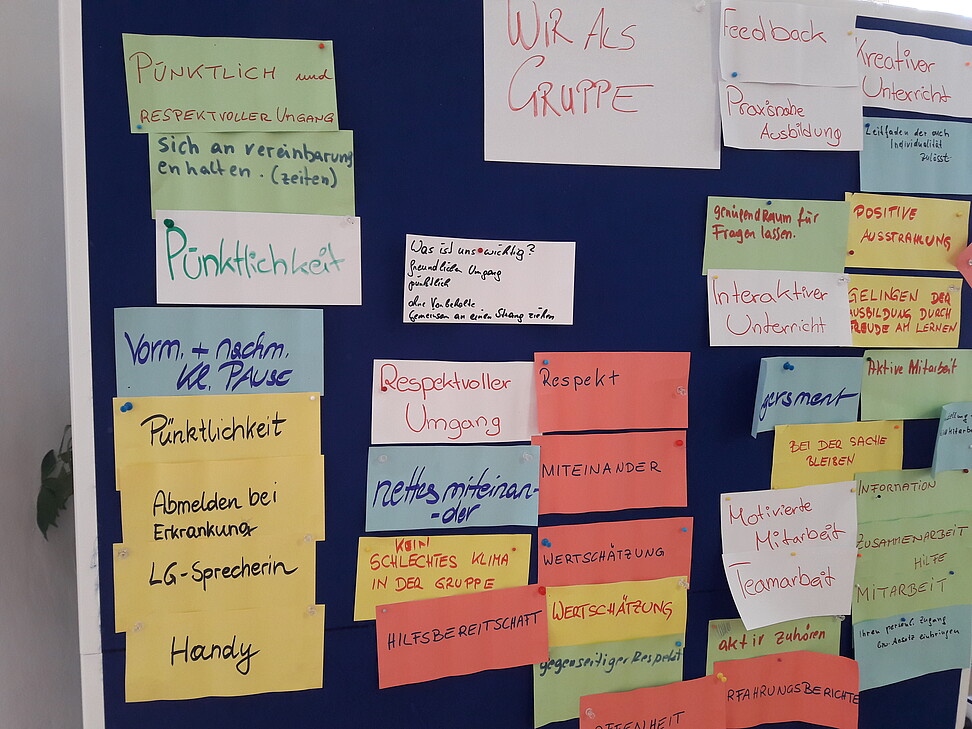 PÜNKTLICH und
RESPEKTVOLLER UMGANG
sich an vereinbarung
en halten. (zeiten)
Pünktlichkeit
Vorm. + nachm.
kl. PAUSE
Pünktlichkeit
Abmelden bei
Erkrankung
LG-Sprecherin
Handy
WIR ALS
GRUPPE
Was ist uns wichtig?
freundlichen Umgang
pünktlich
ohne Vorbehalte
Gemeinsam an einen Strang ziehen
Respektvoller
Umgang
nettes miteinan-
-der
KEIN
SCHLECHTES KLIMA
IN DER GRUPPE
HILFSBEREITSCHAFT
Respekt
MITEINANDER
WERTSCHÄTZUNG
WERTSCHÄTZUNG
gegenseitiger Respekt
OFFENHEIT
Feedback
Praxisnahe
Ausbildung
genügend Raum für
Fragen lassen.
Interaktiver
Unterricht
gersment
BEI DER SACHE
BLEIBEN
Motivierte
Mitarbeit
Teamarbeit
aktiv Zuhören
RFAHRUNGSBERICHTE
Kreativer
Unterricht
Leitfaden der auch
Individualität
zulässt
POSITIVE
AUSSTRAHLUNG
GELINGEN DER
AUSBILDUNG DURCH
FREUDE AM LERNEN
Aktive Mitarbeit
INFORMATION
ZUSAMMENARBEIT
HILFE
MITARBEIT
Ihren persönl. Zugang
bzw. Ansatz einbringen